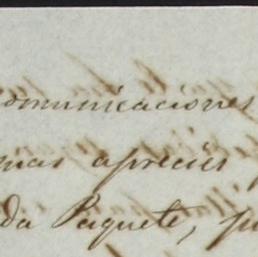 comunicaciones
mas aprecies
da Paquete, p